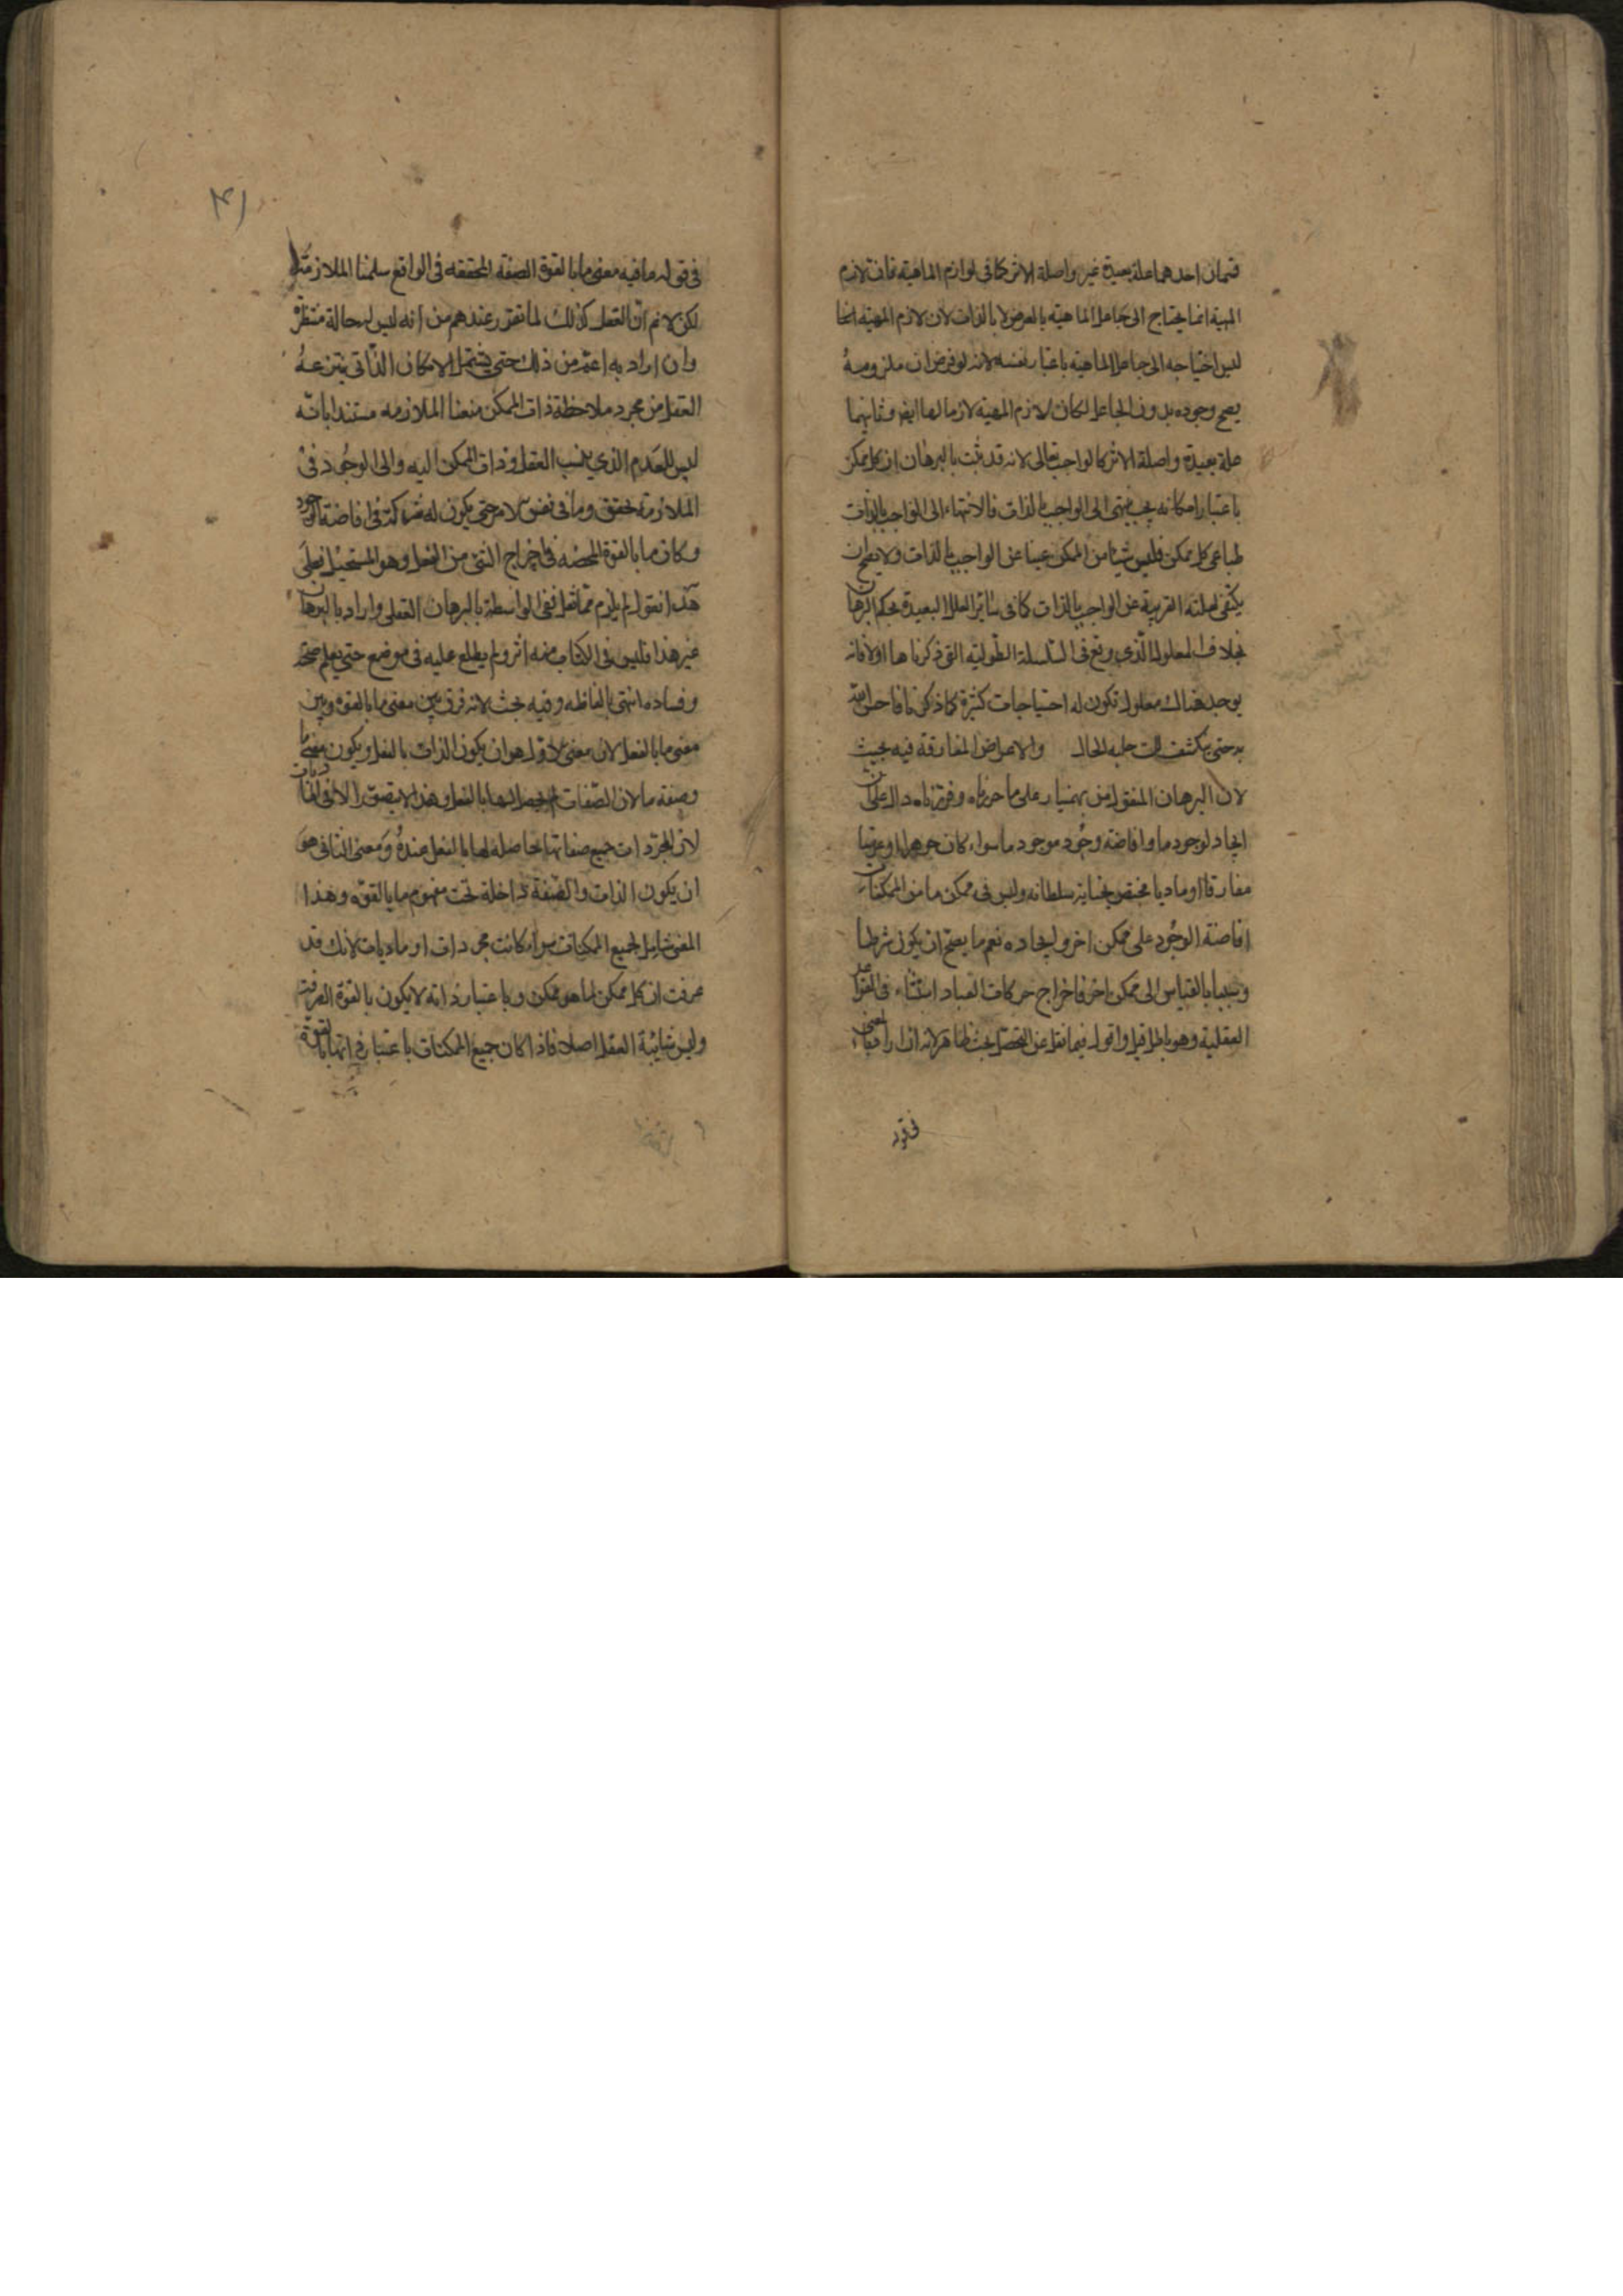 قسمان احدهما علة بعيدة غير واصلة الاثر كما في لوازم الماهية فان لازم
المهية انما يحتاج الى جاعل الماهية بالعرض لا بالذات لان لازم المهية انما
ليس احتياجه الى جاعل الماهية باعتبار نفسه لانه لو فرض ان ملزومه
يصح وجوده بدون الجاعل لكان لازم المهية لازما لها ايض وثانيهما
علة بعيدة واصلة الاثر كالواجب تعالى لانه قد ثبت بالبرهان ان كل ممكن
باعتبار امكانه يجب ينتهى الى الواجب بالذات فالانتهاء الى الواجب بالذات
طباعى كل ممكن فليس شيئا من الممكن غنيا عن الواجب بالذات ولا يصح ان
يكتفى لعلته القريبة عن الواجب بالذات كما في سائر العلل البعيدة بحكم البرهان
بخلاف المعلول الذي وقع في السلسلة الطولية التي ذكرناها اولا فانه
يوجد هناك معلول تكون له احتياجات كثيرة كما ذكرنا فاحتفظ
به حتى ينكشف لك جلية الحال والاعراض المفارقة فيه بحيث
لان البرهان المنقول من بهمنيار على ما حررناه وقررناه دال على ان
ايجاد لوجود ما وافاضة وجود موجود ما سواء كان جوهرا او عرضيا
مفارقا او ماديا مختص بجناية سلطانه وليس في ممكن ما من الممكنات
افاضة الوجود على ممكن اخر وايجاده نعم ما يصح ان يكون شرطا
وسببا بالقياس الى ممكن اخر فاخراج حركات العباد استثناء في القواعد
العقلية وهو باطل قيل واقول فيما نقل عن المحصل بحث ظاهر لانه ان اراد بمعنى
في قوله
٣١
في قوله ما فيه معنى ما بالقوة الصفة المحققه في الواقع سلمنا الملازمة
لكن لانم ان العقل كذلك لما تقرر عندهم من انه ليس له حالة منتظرة
وان اراد به اعم من ذلك حتى يشتمل الامكان الذاتى ينتزعه
العقل من مجرد ملاحظة ذات الممكن منعنا الملازمه مستندا بانه
ليس للعدم الذي ينسب العقل وذات الممكن اليه والى الوجود في
الملازمة تحقق وما في نفس الامر حتى يكون له شركة في افاضة الوجود
وكان ما بالقوة المحضه في اخراج الشئ من الفعل وهو المستحيل فعلى
هذا نقول لم يلزم مما نقل نفى الواسطة بالبرهان العقلى واراد بالبرهان
غير هذا فليس في الكتاب منه اثر ولم يطلع عليه في موضع حتى يعلم صحته
وفساده انتهى بالفاظه وفيه بحث لانه فرق بين معنى ما بالقوه وبين
معنى ما بالفعل لان معنى الاول هو ان يكون الذات بالفعل ويكون معنى ما
وصفة ما لان الصفات لم يحصل لها بالفعل وهذا لا يتصور الا في الماديات
لان المجردات جميع صفاتها حاصلة لها بالفعل عنده ومعنى الثاني هو
ان يكون الذات والصفة داخلة تحت مفهوم ما بالقوه وهذا
المعنى شامل لجميع الممكنات سواء كانت مجردات او ماديات لانك قد
عرفت ان كل ممكن لما هو ممكن وباعتبار ذاته لا يكون بالقوة الصرفة
وليس شائبة العقل اصلا فاذا كان جميع الممكنات باعتبار ذاتها بالقوة